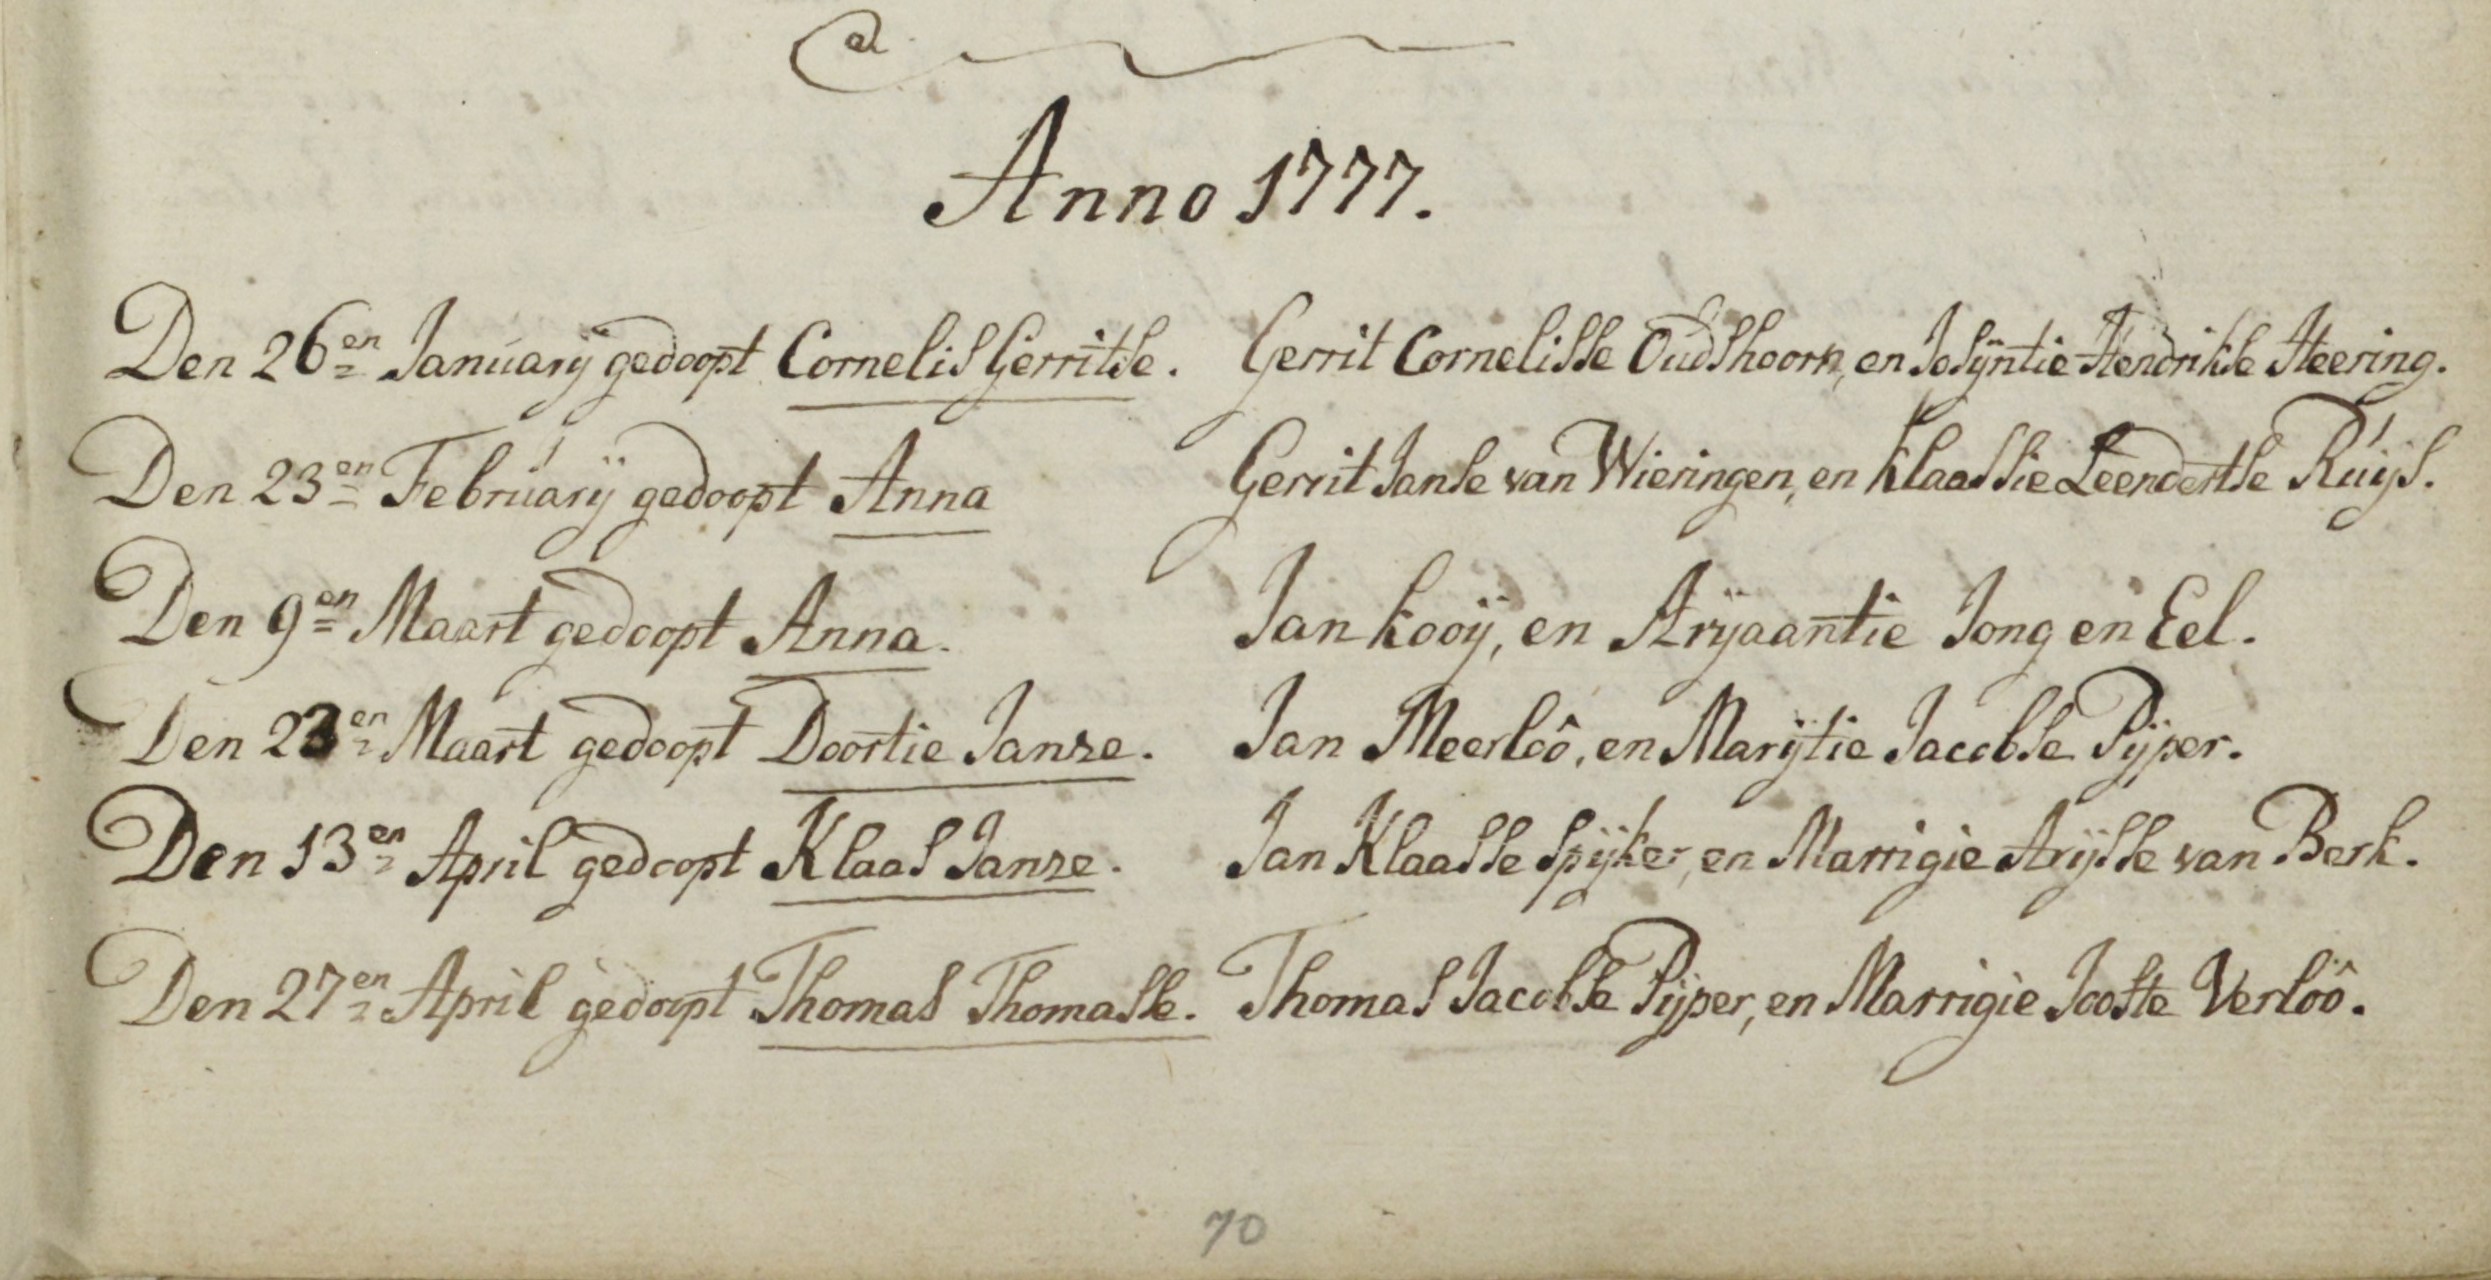 Anno 1777.
Den 26en Januarij gedoopt Cornelis Gerritse. Gerrit Cornelisse Oudshoorn, en Josijntie Hendrikse Heering.
Den 23en Februarij gedoopt Anna Gerrit Janse van Wieringen, en Klaassie Leendertse Ruijs.
Den 9en Maart gedoopt Anna. Jan Kooij, en Arijaantie Jong en Eel.
Den 23en Maart gedoopt Doortie Janze. Jan Meerloô, en Marijtie Jacobse Pijper.
Den 13en April gedoopt Klaas Janze. Jan Klaasse Spijker, en Marrigie Arijsse van Berk.
Den 27en April gedoopt Thomas Thomasse. Thomas Jacobse Pijper, en Marrigie Jooste Verloô.
70